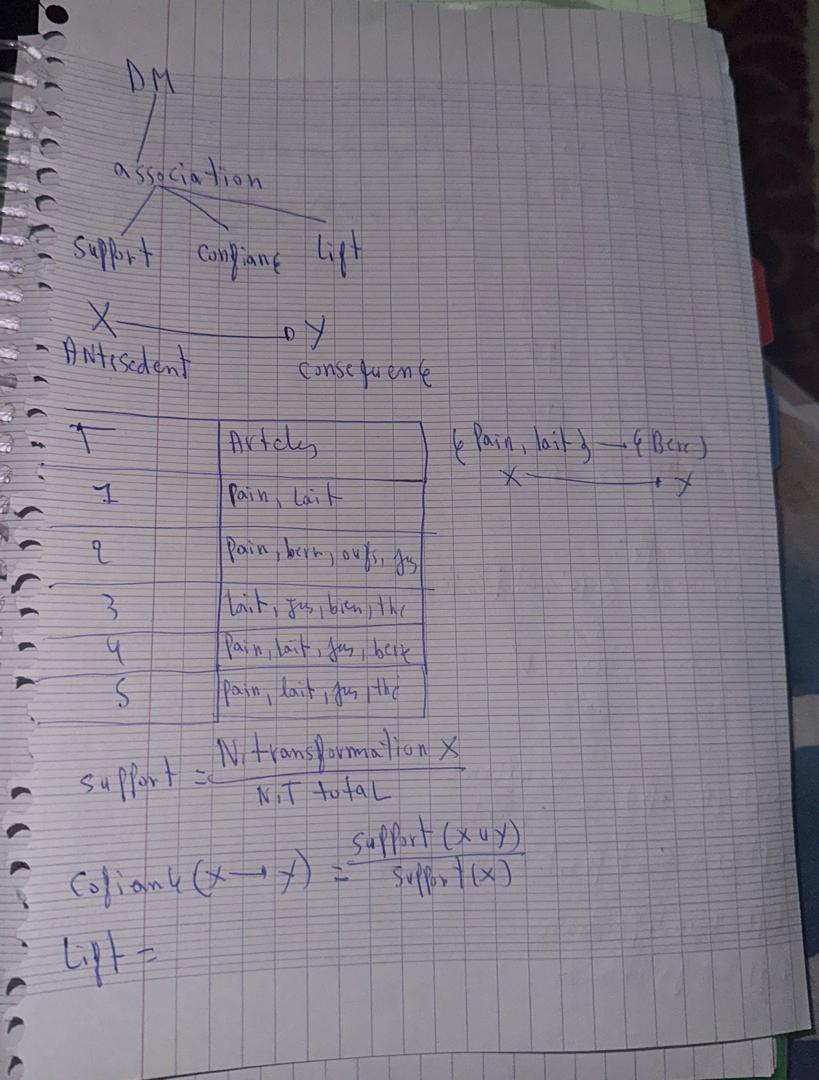 DM
association
Support Confiance Lift
X Y
Antesedent consequence
T Articles {Pain, lait} → {Bere}
X → Y
1 Pain, Lait
2 Pain, berr, oufs, jus
3 lait, jus, bien, thé
4 Pain, lait, jus, bere
5 Pain, lait, jus, thé
support = N, transformation X
N, T total
Cofiance (X → Y) = Support (X ∪ Y)
Support (X)
Lift =